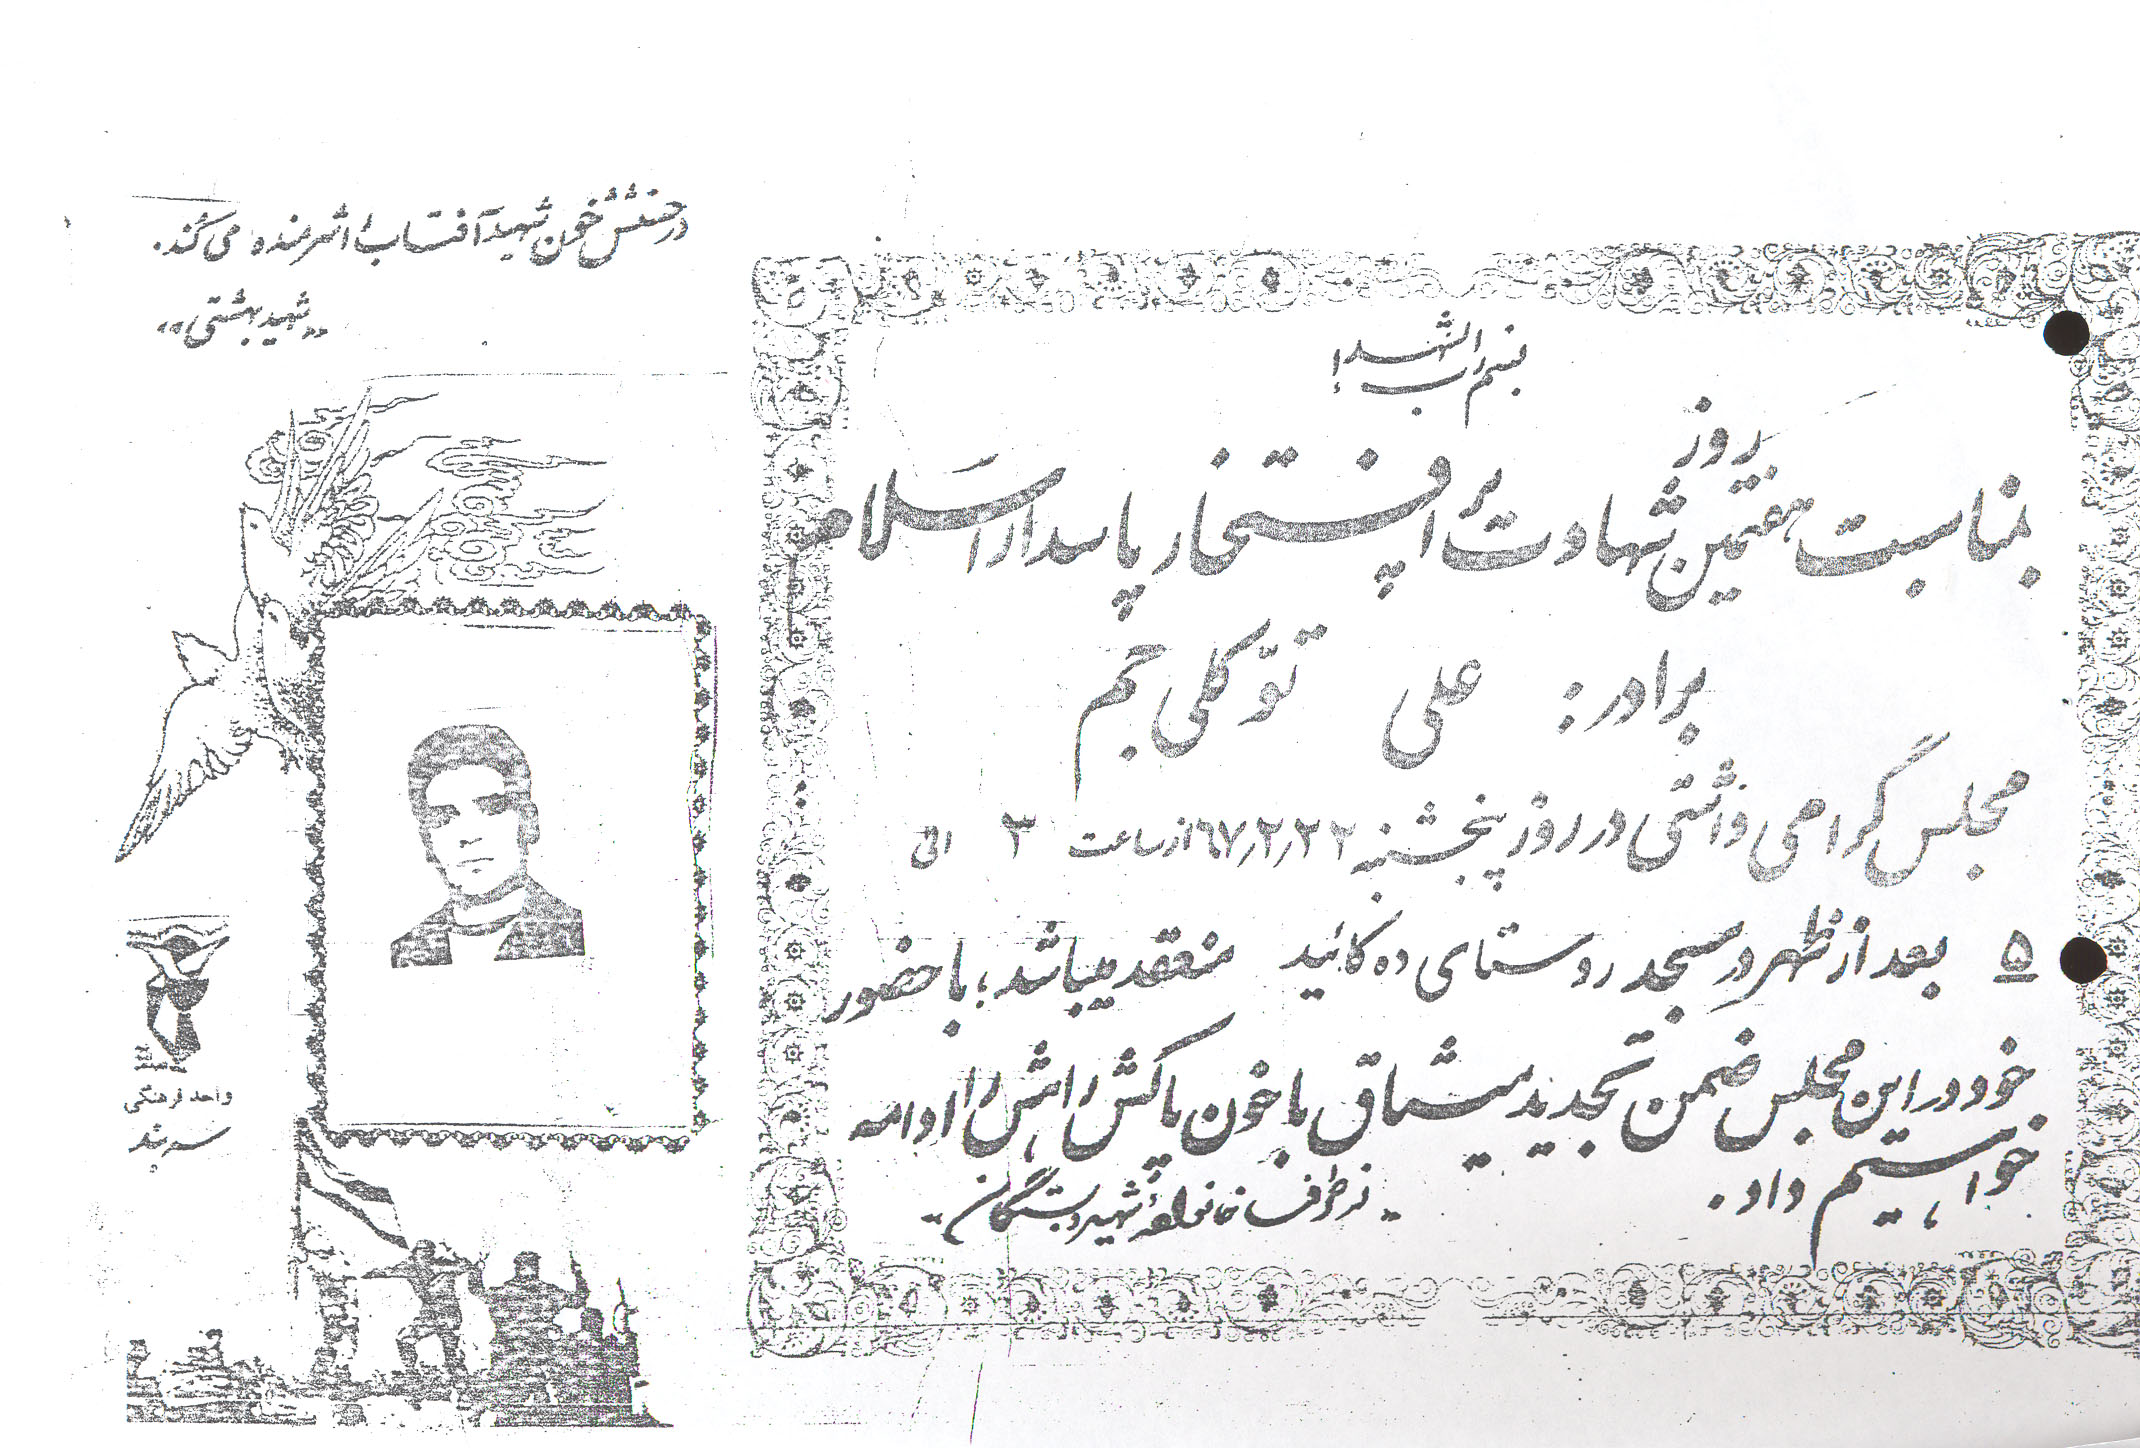 بسم رب الشهداء
بمناسبت هفتمین روز شهادت پر افتخار پاسدار اسلام
برادر: علی توکلی خم
مجلس گرامی داشتی در روز پنجشنبه ۶۷/۲/۲۲ از ساعت ۳ الی
۵ بعد از ظهر در مسجد روستای ده کائید منعقد میباشد؛ با حضور
خود در این مجلس ضمن تجدید میثاق با خون پاکش راهش را ادامه
خواهیم داد.
"از طرف خانواده شهید و بستگان"
درخشش خون شهید آفتاب را شرمنده می کند.
"شهید بهشتی"
واحد فرهنگی
سربند